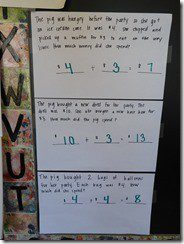 The pig was hungry before the party. She got
an ice cream cone. It was $4. She stopped and
picked up a muffin for $3 to eat on the way
home. How much money did she spend?
$4 + $3 = 7
The pig bought a new dress for the party. The
dress was $10. She also bought a new hair bow for
$3. How much did the pig spend?
$10 + $3 = $13
The pig bought 2 bags of balloons
for her party. Each bag was $4. How
much did she spend?
$4 + $4 = $8
X
W
V
U
T